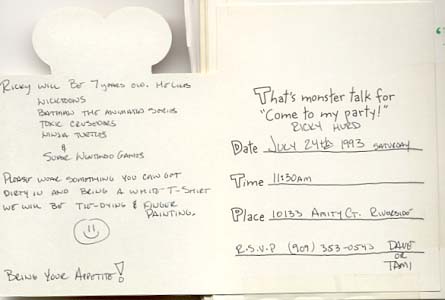 Ricky will be 7 years old. He likes
Nicktoons
Batman the Animated Series
Toxic Crusaders
Ninja Turtles
&
Super Nintendo Games
Please wear something you can get
dirty in and bring a white T-shirt
we will be tie-dying & finger
painting.
Bring your appetite!
That's monster talk for
"Come to my party!"
Ricky Hurd
Date July 24th 1993 Saturday
Time 11:30am
Place 10133 Amity Ct. Riverside
R.S.V.P (909) 353-0543 Dave
or
Tami